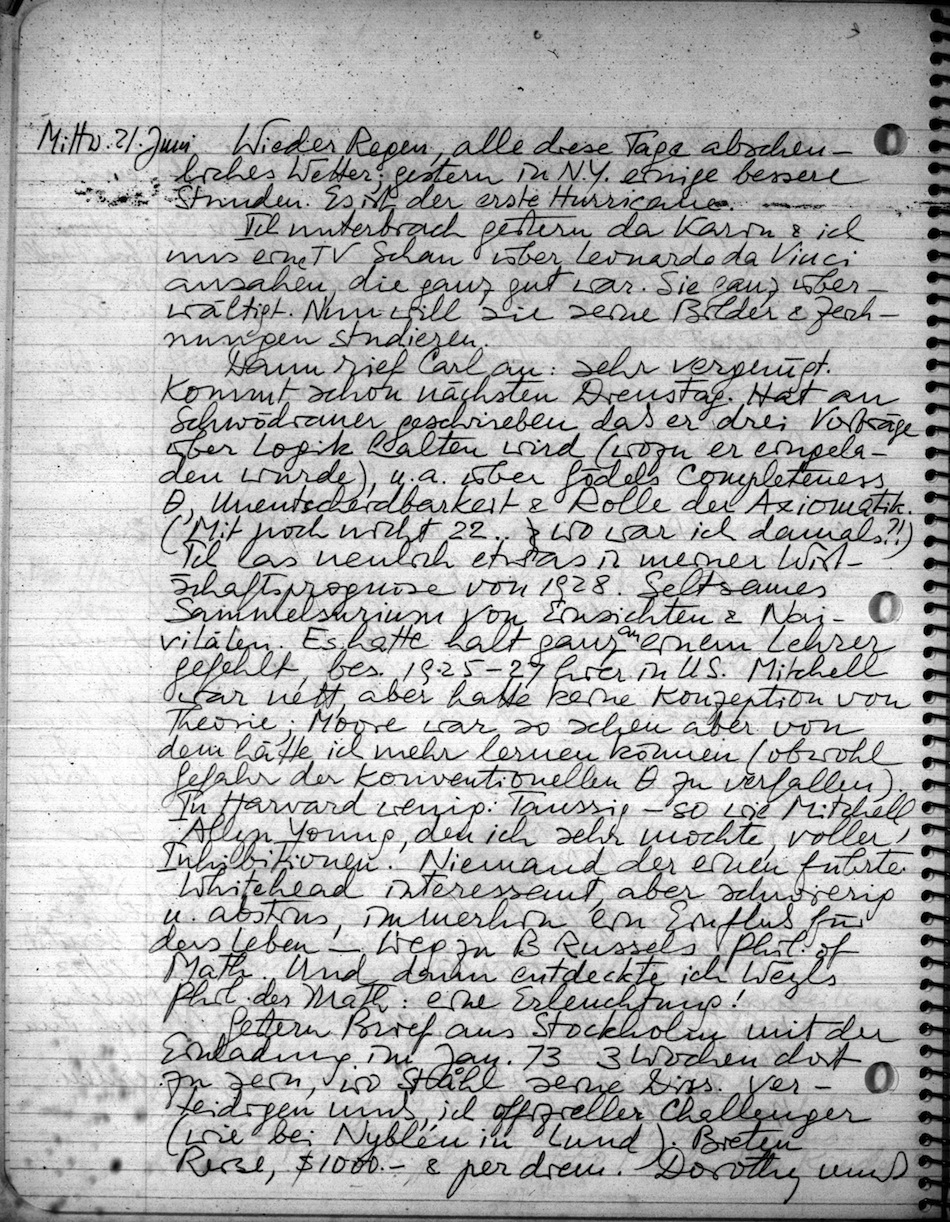 Mittw. 21. Juni Wieder Regen, alle diese Tage abscheu-
liches Wetter; gestern in N.Y. einige bessere
Stunden. Es ist der erste Hurricane.
Ich unterbrach gestern da Karin & ich
uns eine TV Schau über Leonardo da Vinci
ansahen, die ganz gut war. Sie ganz über-
wältigt. Nun will sie seine Bilder & Zeich-
nungen studieren.
Dann rief Carl an: sehr vergnügt.
Kommt schon nächsten Dienstag. Hat an
Schwödiauer geschrieben daß er drei Vorträge
über Logik halten wird (wozu er eingela-
den wurde), u.a. über Gödels Completeness
θ, Unentscheidbarkeit & Rolle der Axiomatik.
(Mit noch nicht 22.. wo war ich damals?!)
Ich las neulich etwas in meiner Wirt-
schaftsprognose von 1928. Seltsames
Sammelsurium von Einsichten & Nai-
vitäten. Es hatte halt ganz an einem Lehrer
gefehlt, bes. 1925-27 hier in U.S. Mitchell
war nett, aber hatte keine Konzeption von
Theorie; Moore war so schon aber von
dem hätte ich mehr lernen können (obwohl
Gefahr der konventionellen θ zu verfallen).
In Harvard wenig: Taussig – so wie Mitchell
Allyn Young, den ich sehr mochte, voller
Inhibitionen. Niemand der einen führte.
Whitehead interessant, aber schwierig
u. abstrus, immerhin ein Einfluß für
das Leben – Weg zu B Russels Phil. of
Math. Und dann entdeckte ich Weyls
Phil. der Math: eine Erleuchtung!
Gestern Brief aus Stockholm mit der
Einladung im Jan. 73 3 Wochen dort
zu sein, wo Ståhl seine Diss. ver-
teidigen muß, ich offizieller Challenger
(wie bei Nyblén in Lund). Bieten
Reise, $1000.- & per diem. Dorothy muß